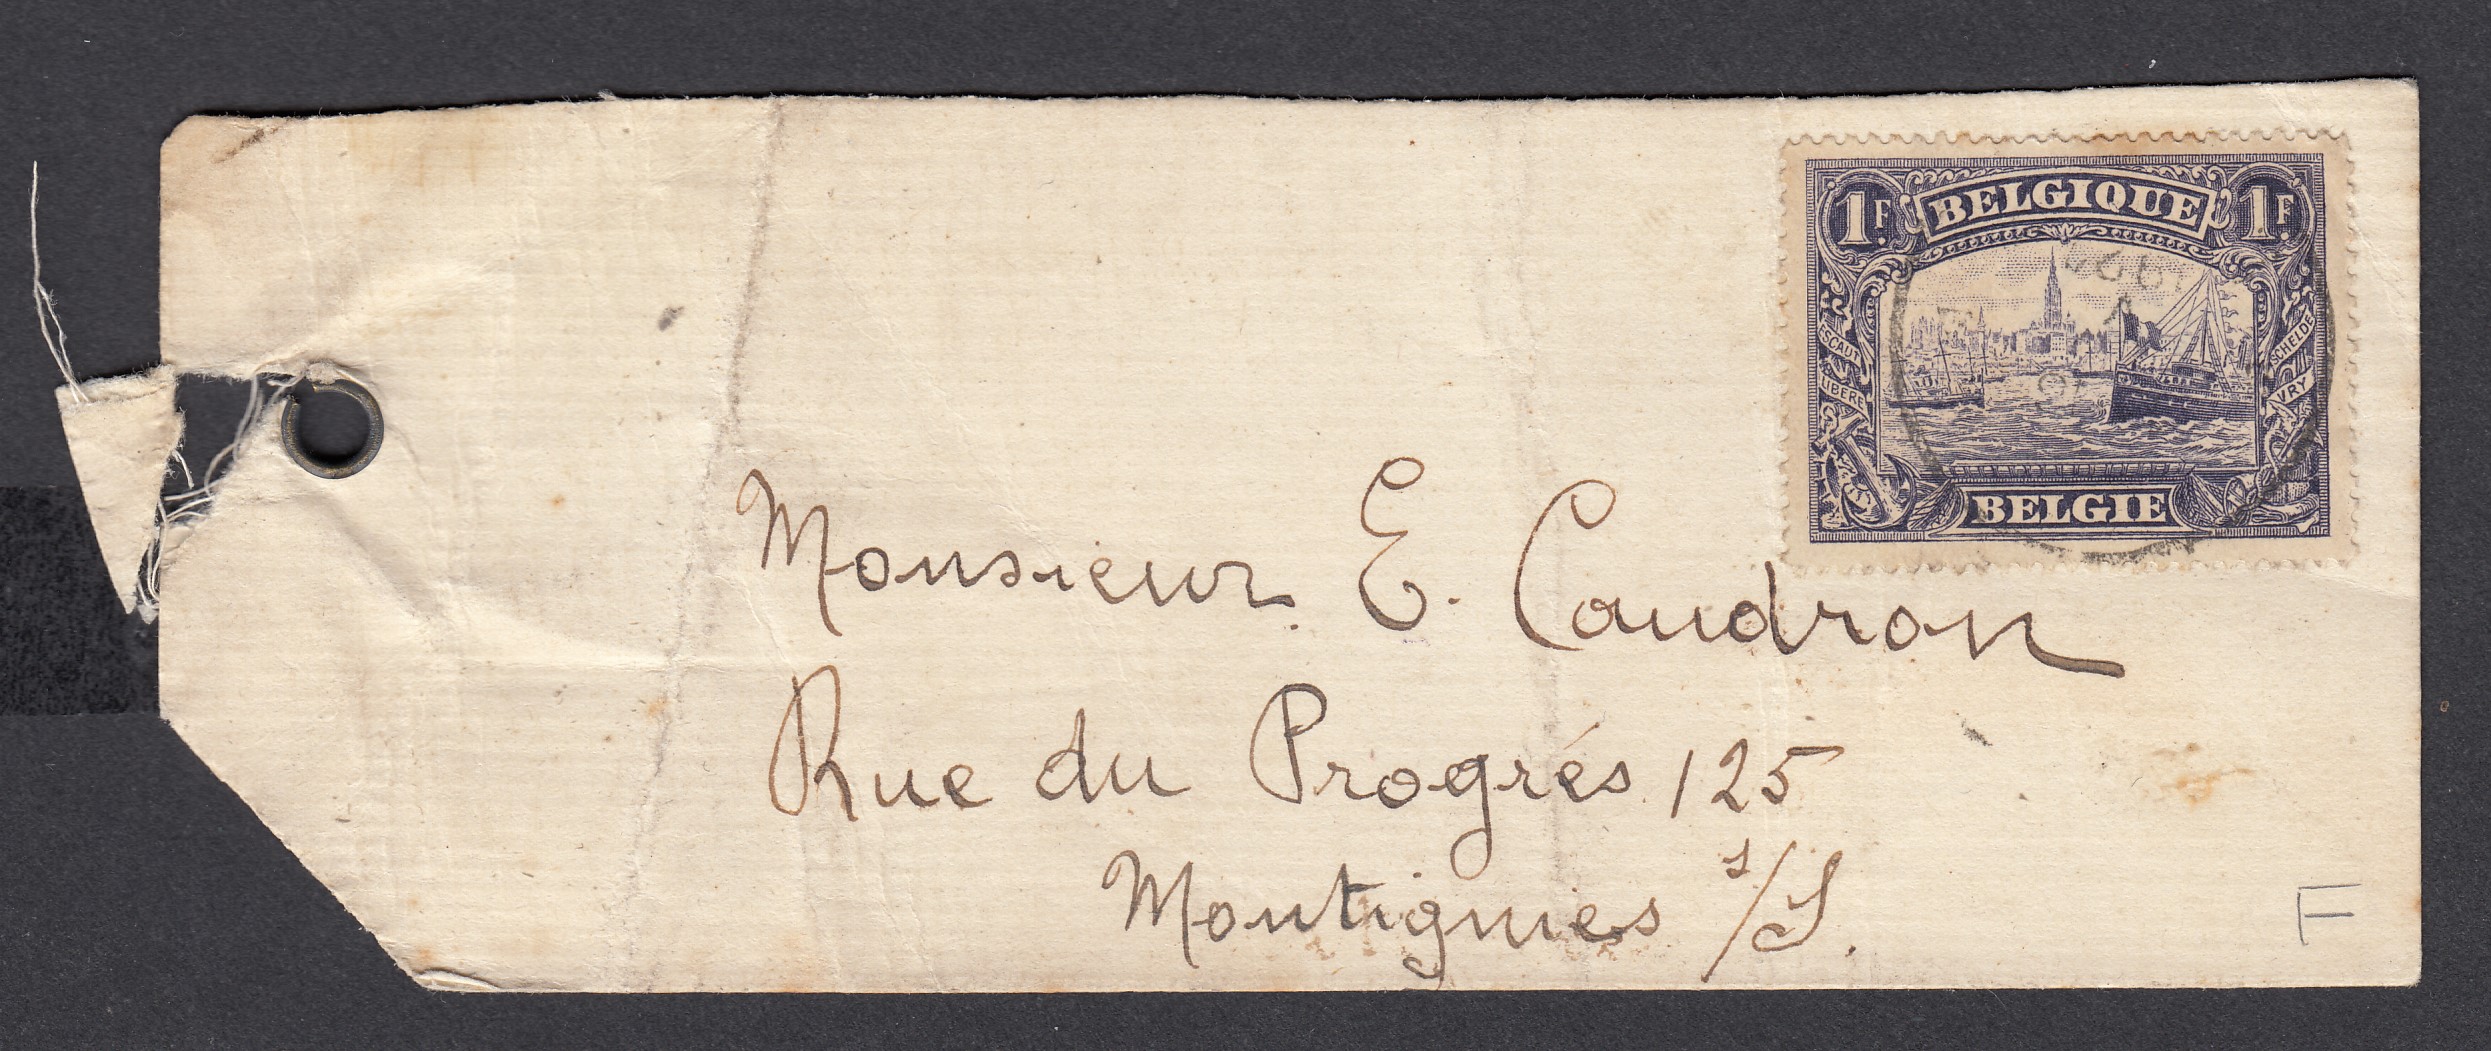 1F. BELGIQUE 1F.
ESCAUT LIBERE
SCHELDE VRY
BELGIE
Monsieur. E. Caudron
Rue du Progrés 125
Montignies s/S.
F